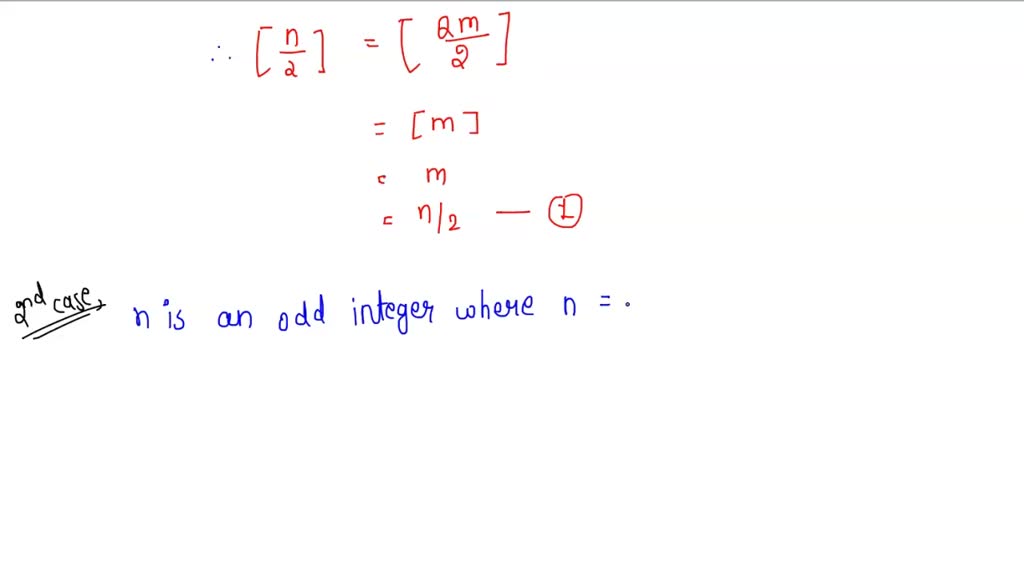 ∴ [n/2] = [2m/2]
= [m]
= m
= n/2 — ①
2nd case, n is an odd integer where n = .